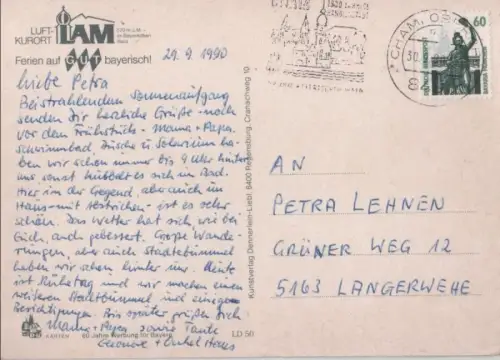 LUFT-
KURORT
LAM
Ferien auf GUT bayerisch!
29.9.1990
Liebe Petra
Bei strahlendem Sonnenaufgang
senden Dir herzliche Grüße noch
vor dem Frühstück - Mama + Papa.
Schwimmbad, Dusche u. Solarium ha-
ben wir schon immer bis 9 Uhr hinter
uns, sonst es sich im Bad.
Hier in der Gegend, aber auch im
Haus - mit Abstrichen - ist es sehr
schön. Das Wetter hat sich, wie bei
Euch, auch gebessert. Große Wande-
rungen, aber auch Stadtbummel
haben wir schon hinter uns. Heute
ist Ruhetag und wir machen einen
weiteren Stadtbummel mit einigen
Besichtigungen. Bis später grüßen Dich
Mama + Papa sowie Tante
Leonore + Onkel Hans
60 Jahre Werbung für Bayern
LD 50
Kunstverlag Dennerlein-Liebl, 8400 Regensburg, Cranachweg 10
CHAM, OB
30.
8
60
AN
PETRA LEHNEN
GRÜNER WEG 12
5163 LANGERWEHE